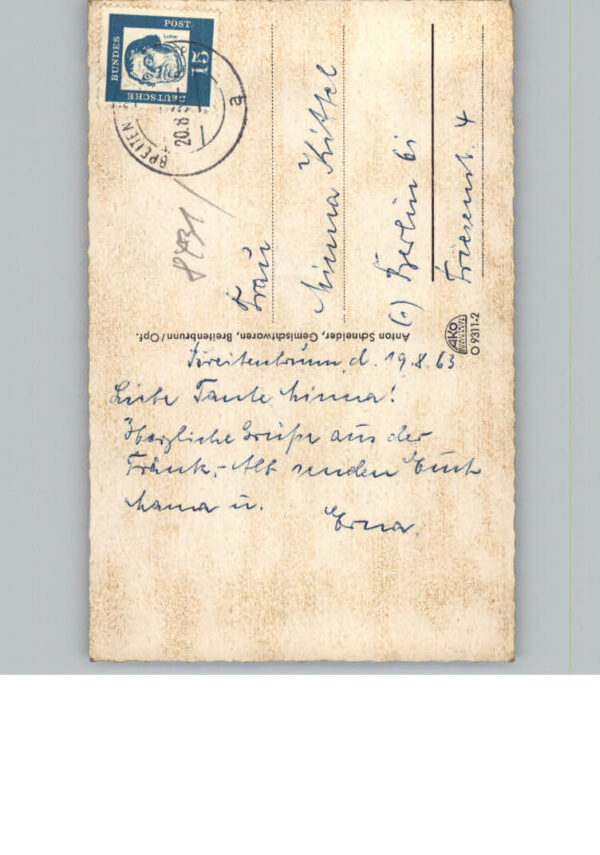 Breitenbrunn, d. 19.8.63
Liebe Tante Minna!
Herzliche Grüße aus der
Fränk.-Alb senden Euch
Mama u. Erna.
Frau
Minna Kittel
(1) Berlin 61
Friesenstr. 4
8431/
Anton Schneider, Gemischtwaren, Breitenbrunn/Opf.
AKO
O 9311-2
DEUTSCHE BUNDESPOST
15
Luther
BREITEN
20.8
a